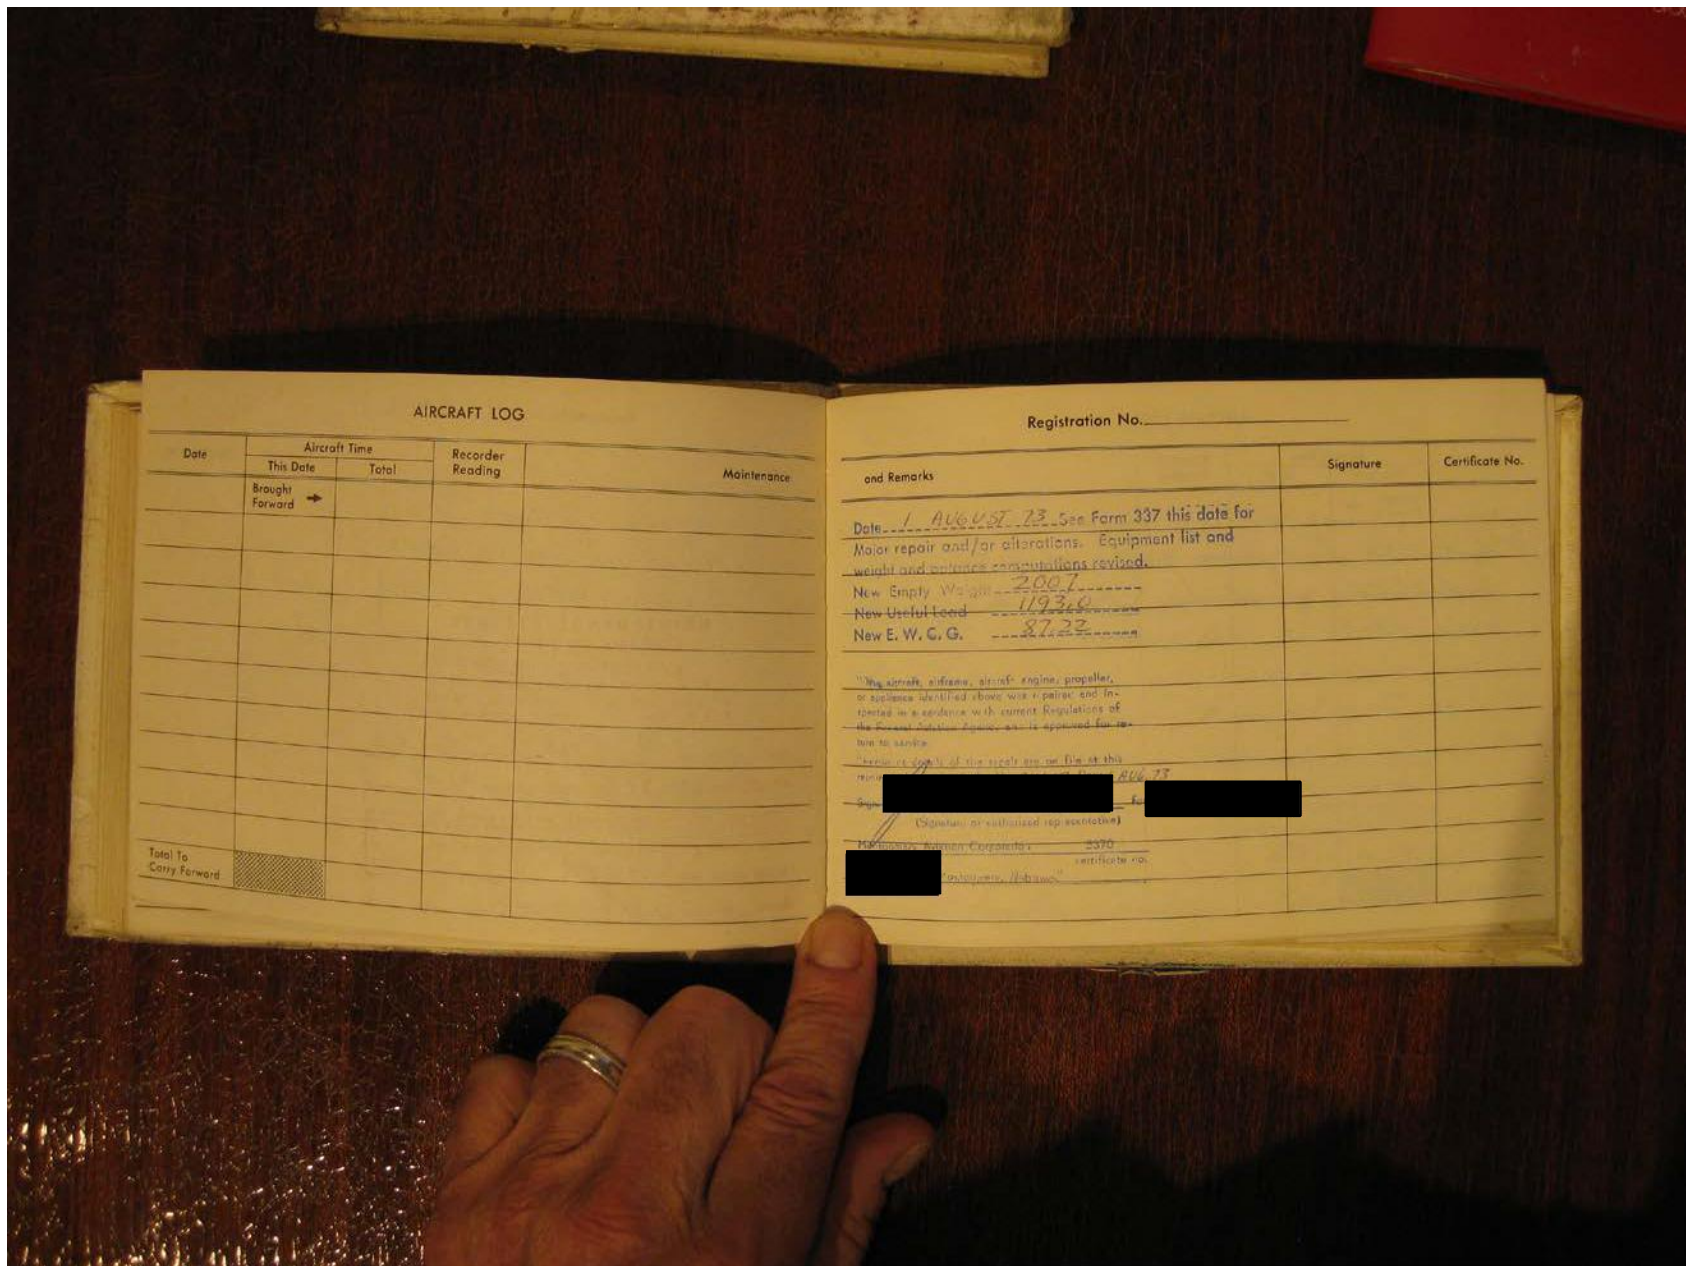 AIRCRAFT LOG
Date
Aircraft Time
This Date
Total
Recorder
Reading
Maintenance
Brought
Forward
Total To
Carry Forward
Registration No.
and Remarks
Signature
Certificate No.
Date 1 AUGUST 73 See Form 337 this date for
Major repair and/or alterations. Equipment list and
weight and balance computations revised.
New Empty Weight 2007
New Useful Load 1193.0
New E. W. C. G. 87.22
"The aircraft, airframe, aircraft engine, propeller,
or appliance identified above was repaired and in-
spected in accordance with current Regulations of
the Federal Aviation Agency and is approved for re-
turn to service.
details of the repair are on file at this
AUG 73
(Signature of authorized representative)
Aviation Corporation 3370
certificate no.
Alabama"